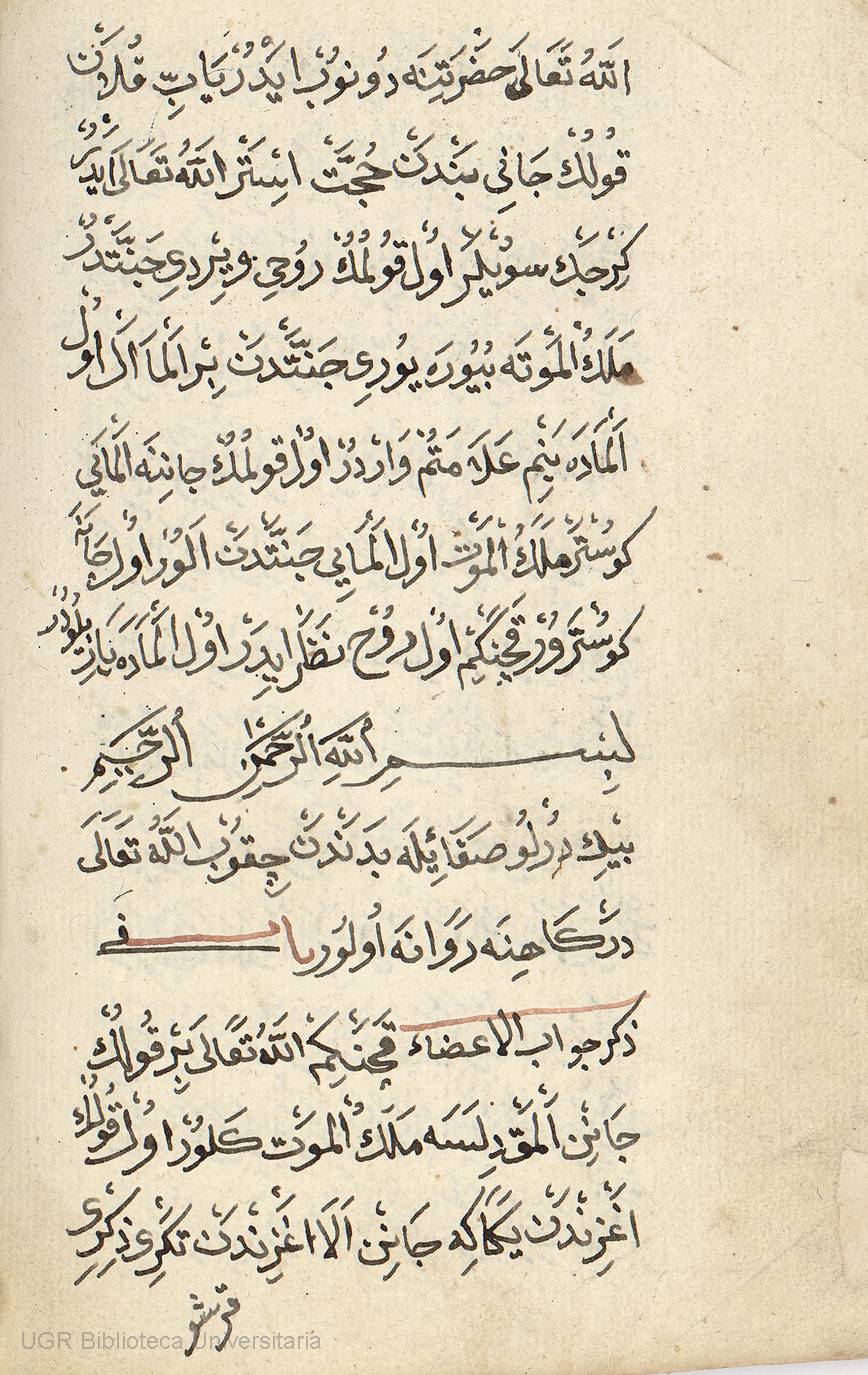 اللّٰهُ تَعَالَى حَضْرَتِنَه دُونُوبْ ايَدُرْ يَا رَبِّ قُلُكَنْ
قُولُكْ جَانِي بَنْدَنْ حُجَّتْ اسْتَرْ اللّٰهُ تَعَالَى ايَدُرْ
كَرْجَكْ سويْلَرْ اوُلْ قُولُمُكْ رُوحِي ويرِدِي جَنَّتْدَدُرْ
مَلَكُ الْمَوْتَه بُيُورَه يُورِى جَنَّتْدَنْ بِرْ اَلْمَا اَلْ اوُلْ
اَلْمَادَه بَنِمْ عَلَامَتُمْ وَارْدُرْ اوُلْ قُولُمُكْ جَانِنَه اَلْمَايِي
كوسْتَرْ مَلَكُ الْمَوْتْ اوُلْ اَلْمَايِي جَنَّتْدَنْ اَلُورْ اوُلْ جَانَه
كوسْتَرُورْ قَچَنْكِمْ اوُلْ رُوحْ نَظَرْ ايدَرْ اوُلْ اَلْمَادَه يَازِلُودُرْ
بِسْمِ اللّٰهِ الرَّحْمٰنِ الرَّحِيمِ
بيكْ دُرْلُو صَفَايِلَه بَدَنْدَنْ چِقُوبْ اللّٰهُ تَعَالَى
دَرْكَاهِنَه رَوَانَه اُولُورْ باب في
ذكر جواب الاعضاء قَچَنْكِمْ اللّٰهُ تَعَالَى بِرْ قُولُكْ
جَانِنْ اَلْمَقْ دِلَسَه مَلَكُ الْمَوَتْ كَلُورْ اوُلْ قُولُكْ
اَغْزِنْدَنْ يَكَاكِه جَانِنْ اَلَا اغْزِنْدَنْ تَكْرِى ذِكْرِى
قرشو
UGR Biblioteca Universitaria